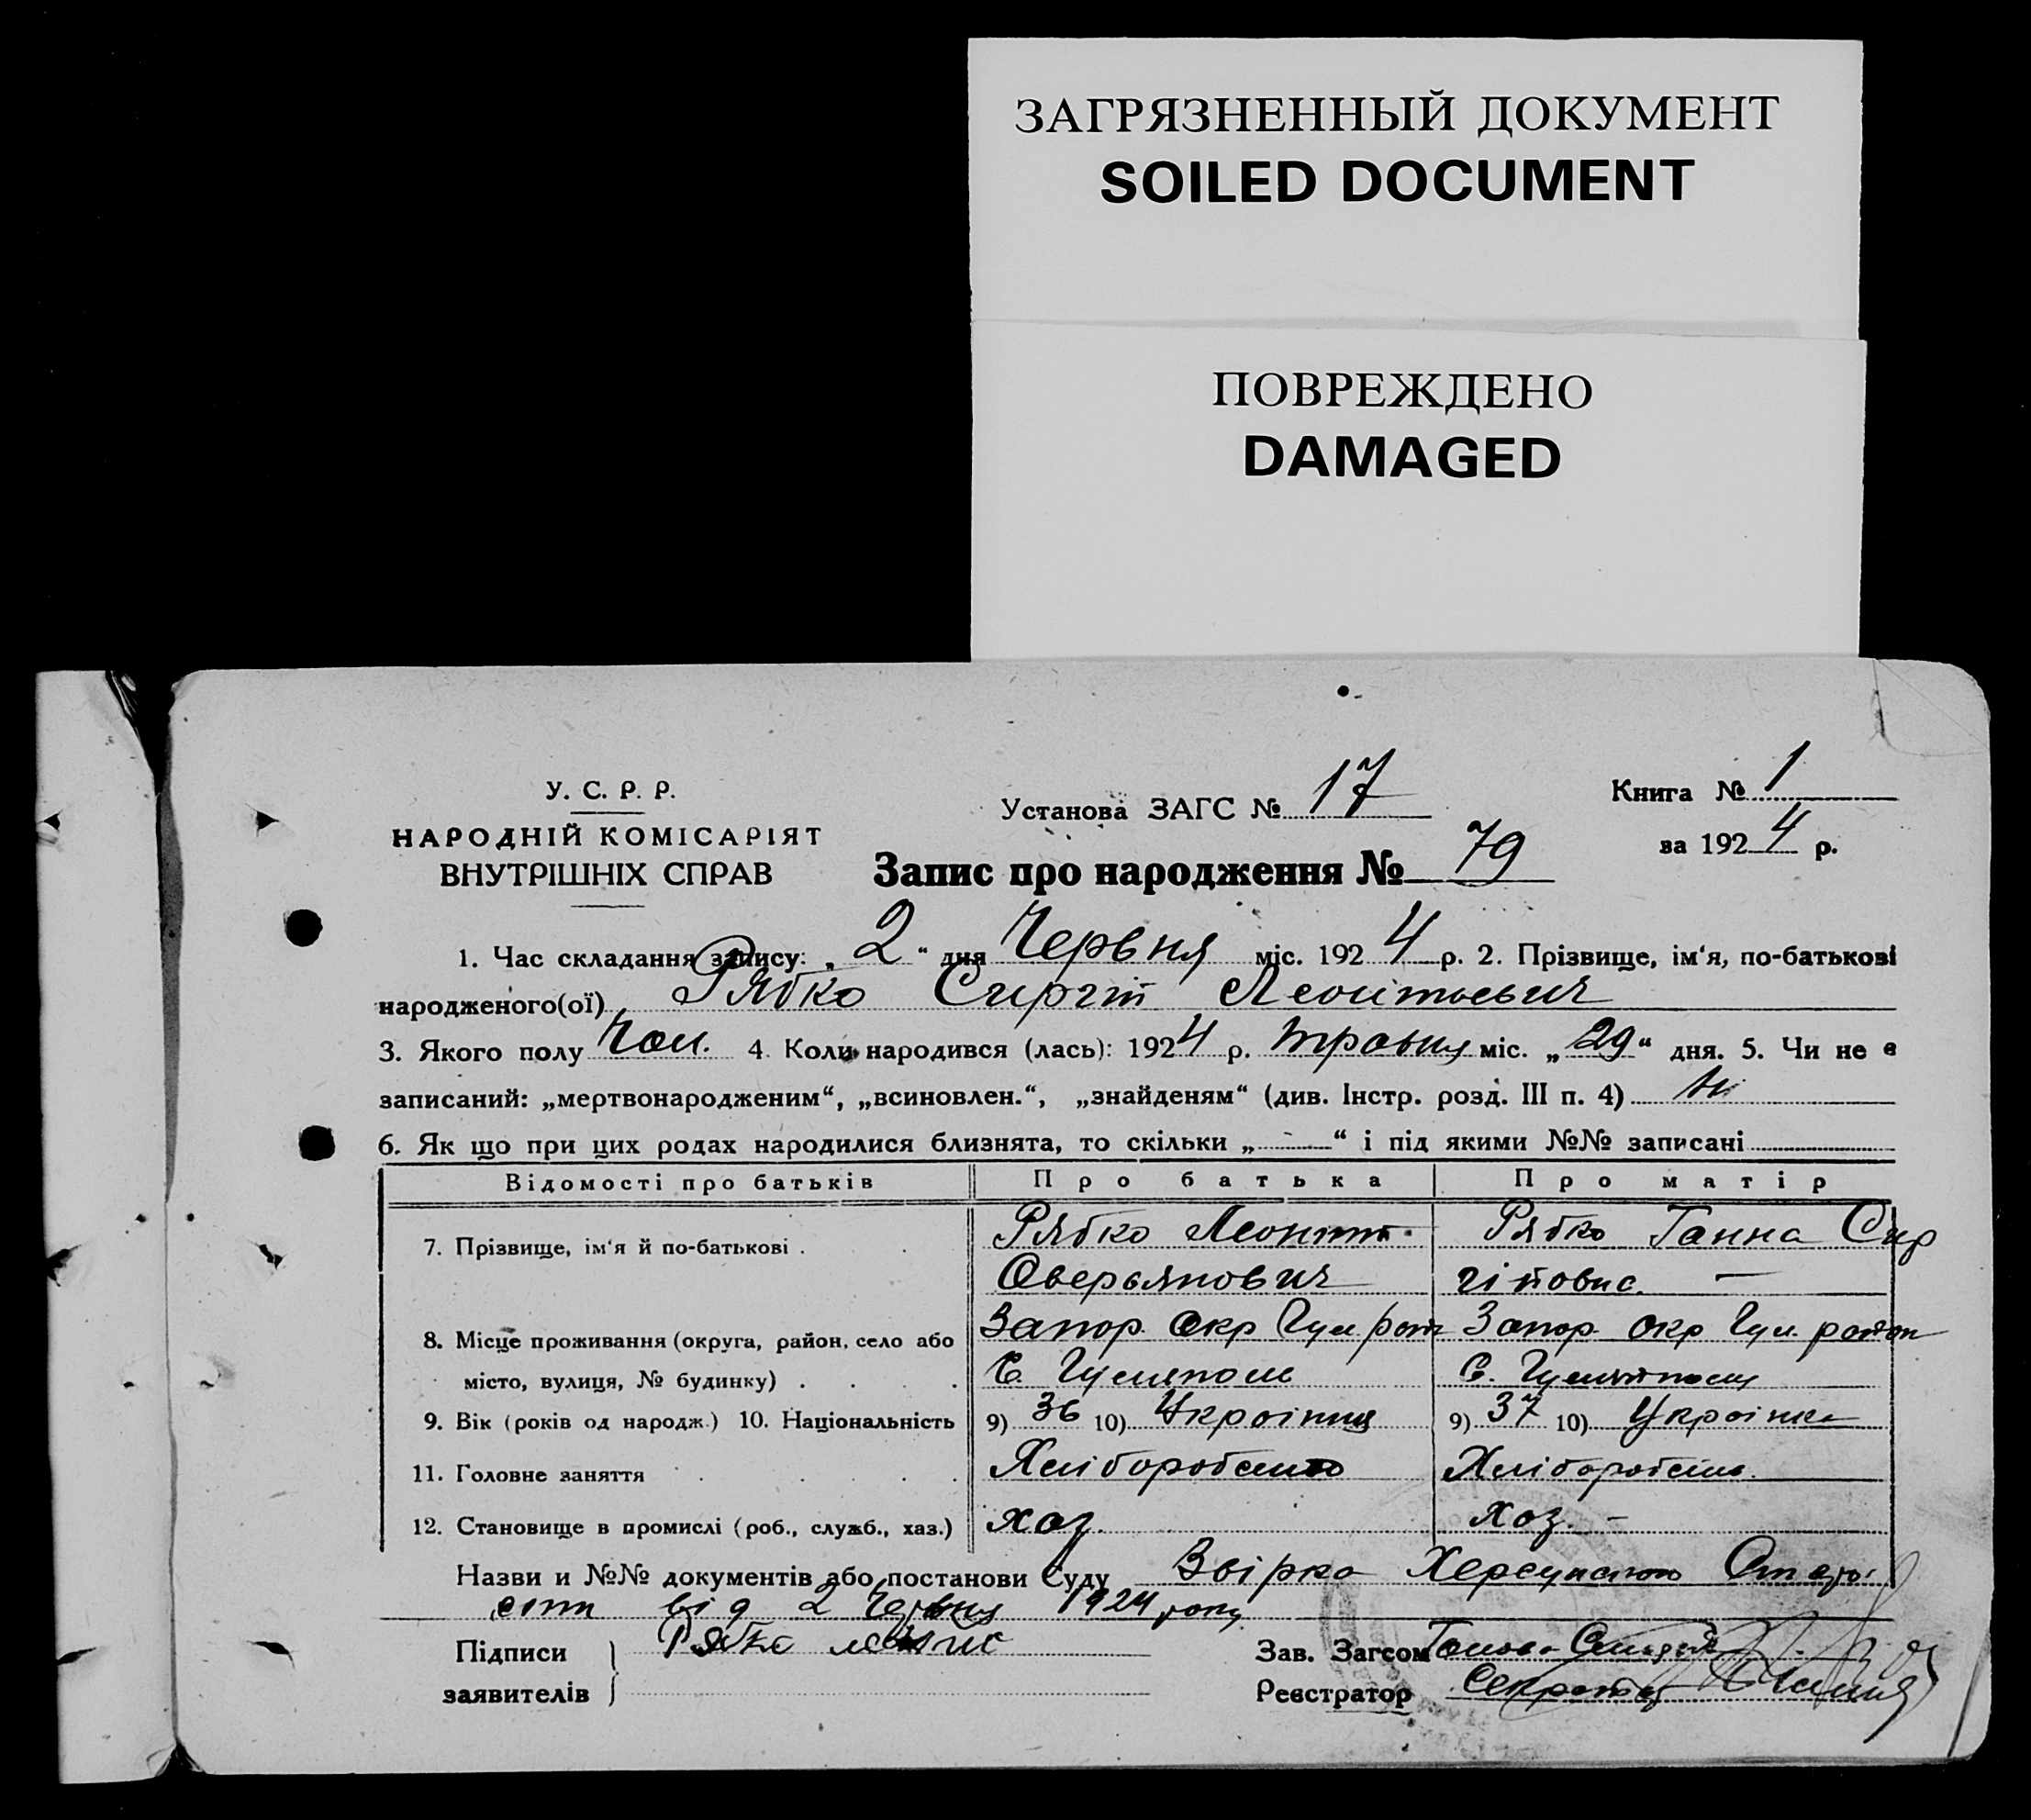 ЗАГРЯЗНЕННЫЙ ДОКУМЕНТ
SOILED DOCUMENT
ПОВРЕЖДЕНО
DAMAGED
У. С. Р. Р.
НАРОДНІЙ КОМІСАРІЯТ
ВНУТРІШНІХ СПРАВ
Установа ЗАГС № 17
Книга № 1
за 1924 р.
Запис про народження № 79
1. Час складання запису: „ 2 “ дня Червня міс. 1924 р. 2. Прізвище, ім‘я, по-батькові
народженого(ої) Рябко Сиргій Леонтьевич
3. Якого полу Чол. 4. Коли народився (лась): 1924 р. травня міс. „29“ дня. 5. Чи не є
записаний: „мертвонародженим“, „всиновлен.“, „знайденям“ (див. Інстр. розд. III п. 4) ні
6. Як що при цих родах народилися близнята, то скільки „ - “ і під якими №№ записані
Відомості про батьків Про батька Про матір
7. Прізвище, ім‘я й по-батькові . Рябко Леонтій Рябко Ганна Сир
Оверьянович гіівна. —
8. Місце проживання (округа, район, село або Запор. Окр Гул. район Запор. окр Гул. район
місто, вулиця, № будинку) С. Гуляполе С. Гуляйполе
9. Вік (років од народж.) 10. Національність 9) 36 10) Украінец 9) 37 10) Украінка
11. Головне заняття Хліборобство Хліборобство
12. Становище в промислі (роб., служб., хаз.) хоз. хоз. -
Назви и №№ документів або постанови Суду Звірка Херсунского
від 2 Червня 1924 року
Підписи Рябко
заявителів
Зав. Загсом Голова
Реєстратор Секретар